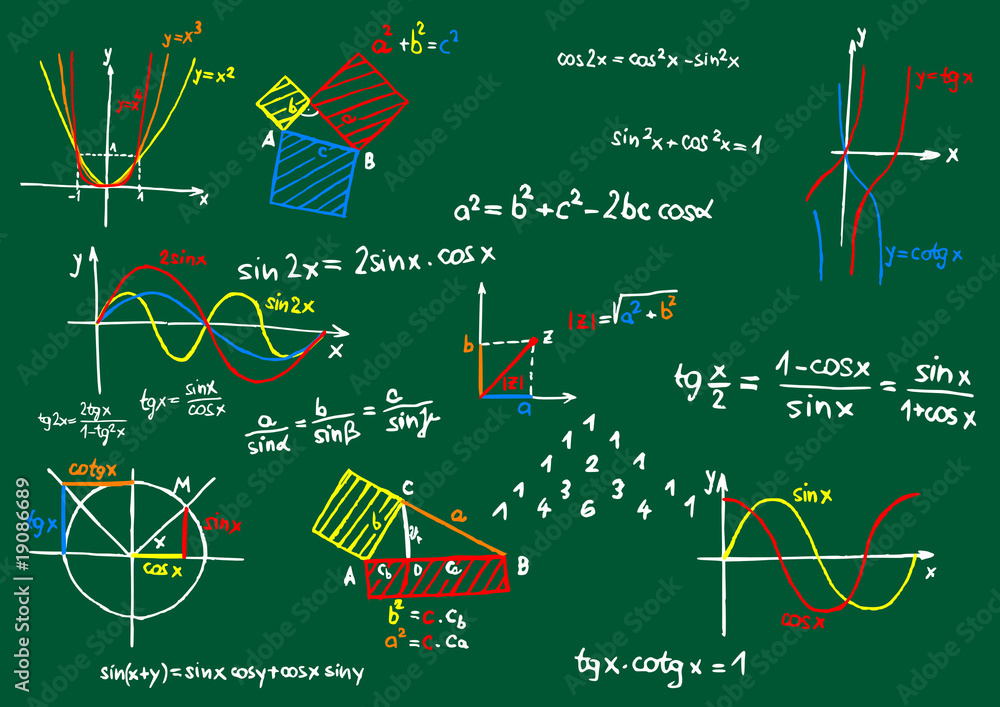 y
y=x³
y=x²
y=x⁴
1
-1
1
x
a²+b²=c²
b
a
c
A
B
cos2x=cos²x-sin²x
sin²x+cos²x=1
a²=b²+c²-2bc cosα
y
y=tgx
x
y=cotgx
y
2sinx
sin2x
x
sin2x=2sinx.cosx
b
|z|
z
a
|z|=√a²+b²
tg x/2 = 1-cosx/sinx = sinx/1+cosx
tg2x=2tgx/1-tg²x
tgx=sinx/cosx
a/sinα=b/sinβ=c/sinγ
1
1 1
1 2 1
1 3 3 1
1 4 6 4 1
cotgx
M
tgx
sinx
x
cosx
C
b
a
A
B
c_b
D
c_a
b²=c.c_b
a²=c.c_a
y
sinx
cosx
x
sin(x+y)=sinx cosy+cosx siny
tgx.cotgx=1
Adobe Stock | 19086689